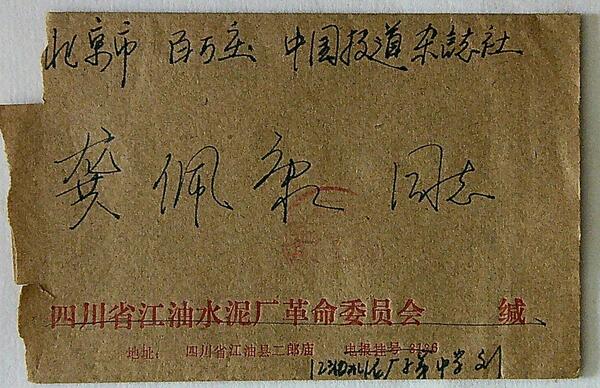 北京市 百万庄 中国报道杂誌社
龚佩康 同志
四川省江油水泥厂革命委员会 缄
地址: 四川省江油县二郎庙 电报挂号 3136
江油水泥厂子弟中学 刘